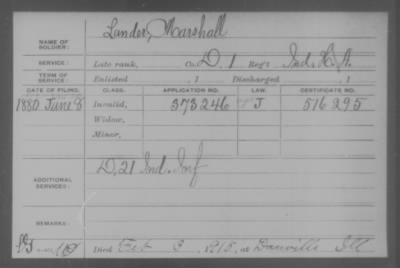 NAME OF SOLDIER: Lander, Marshall
SERVICE: Late rank, Co. D, 1 Reg't Ind. H. A.
TERM OF SERVICE: Enlisted , 1 Discharged , 1
DATE OF FILING. CLASS. APPLICATION NO. LAW. CERTIFICATE NO.
1880 June 8 Invalid, 373246 J 516295
Widow,
Minor,
ADDITIONAL SERVICES: D, 21 Ind. Inf
REMARKS:
Died Feb 3, 1915, at Danville Ill